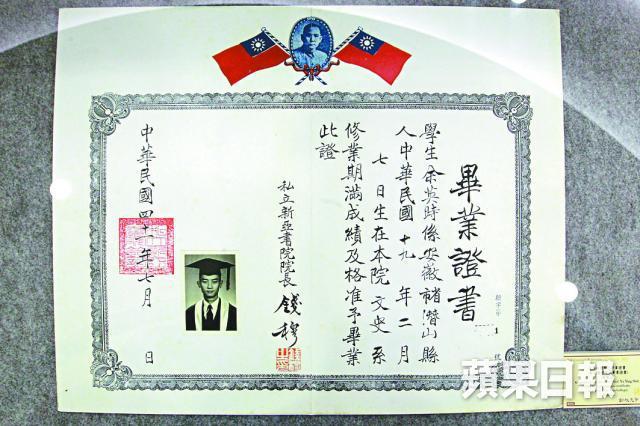 畢業證書
學生余英時係安徽省潛山縣
人中華民國十九年二月
七日生在本院文史系
修業期滿成績及格准予畢業
此證
私立新亞書院院長 錢穆
中華民國四十一年七月 日
蘋果日報